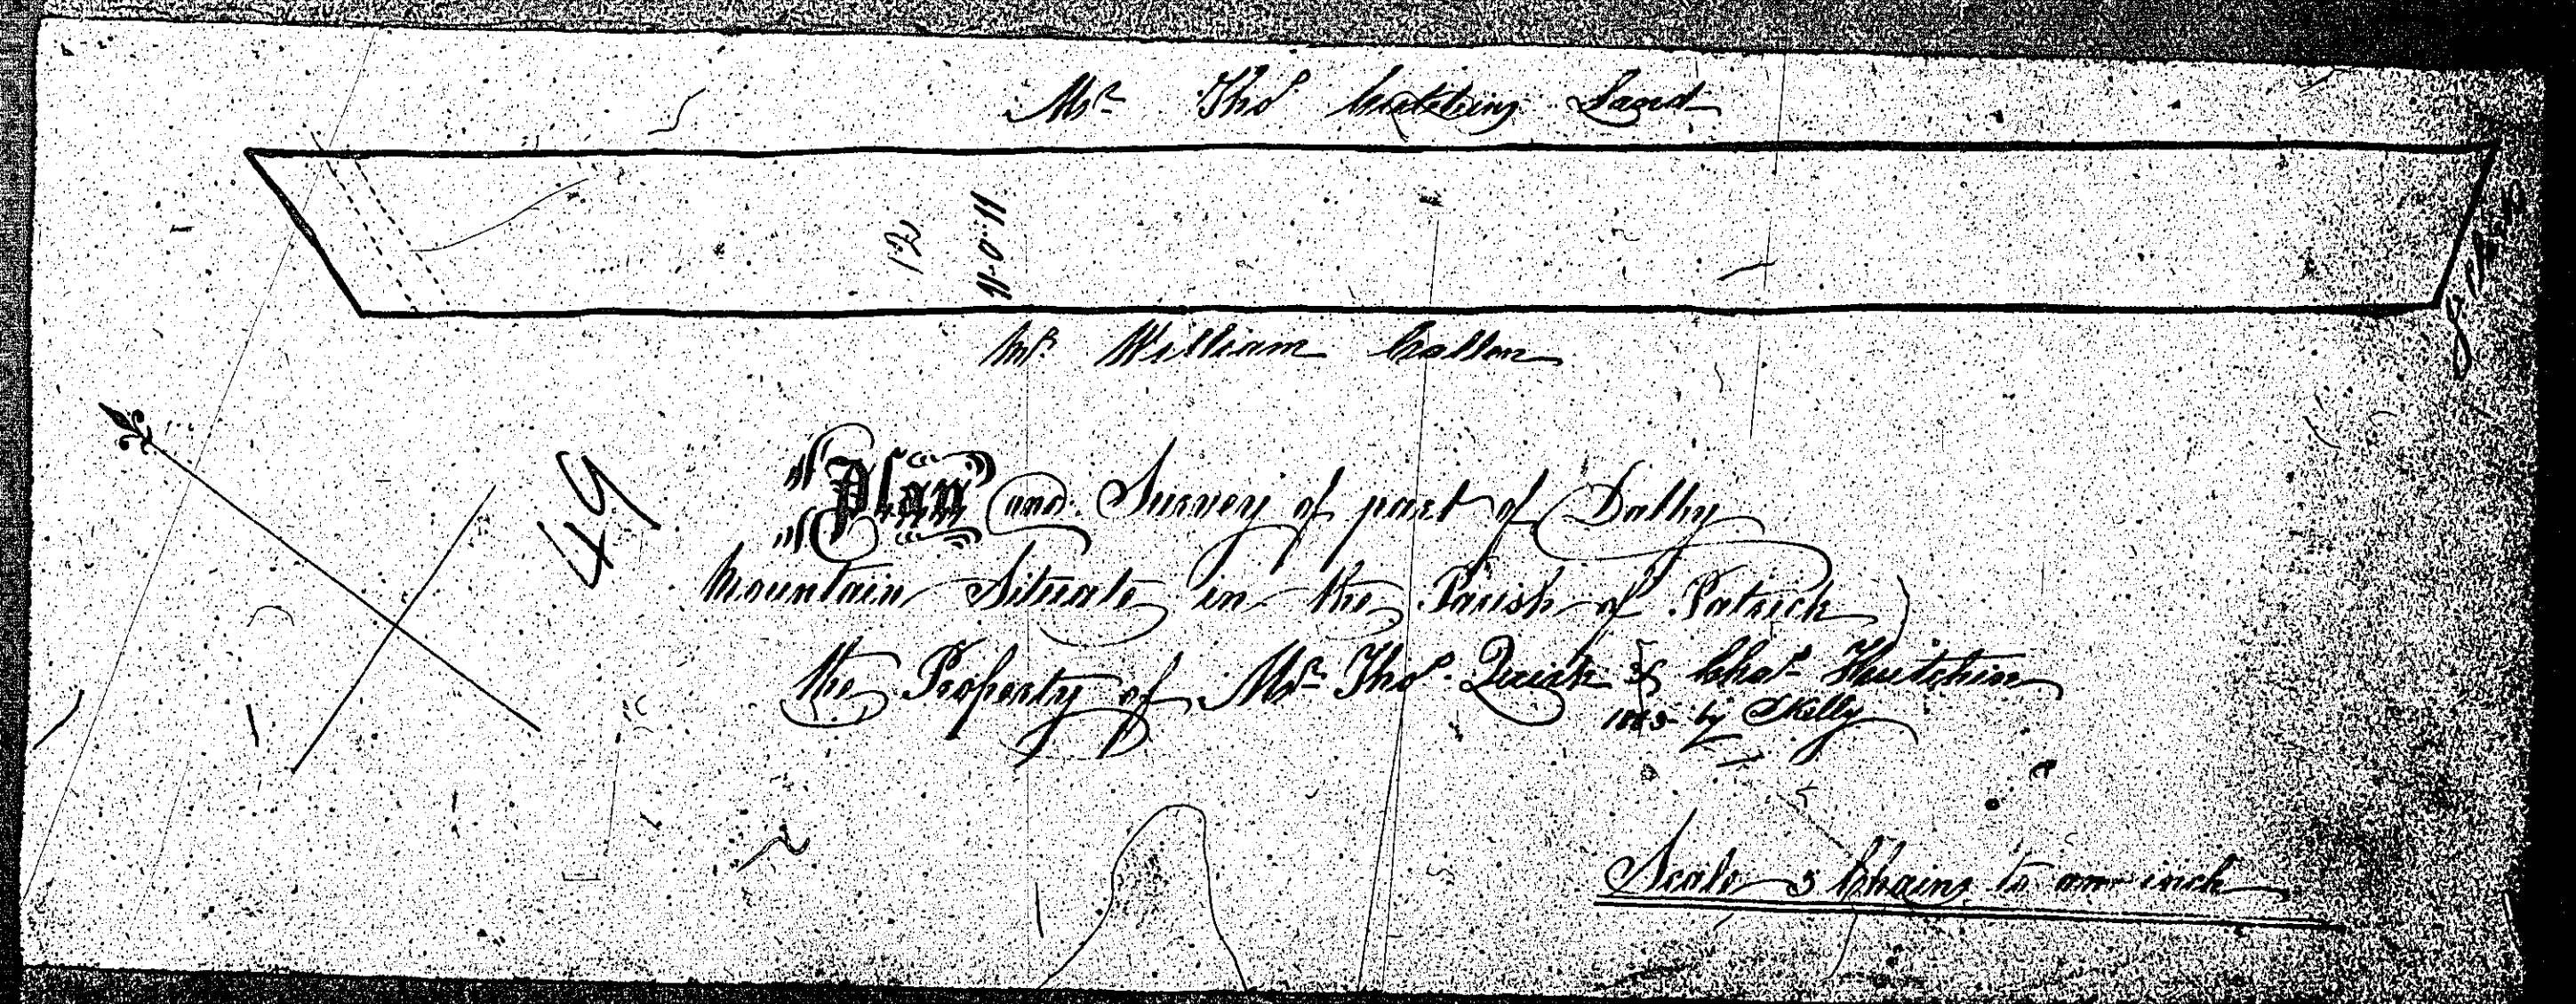 Mr Thos Cutching Land
12
11-0-11
Mr William Callen
49
Plan and Survey of part of Dalby
Mountain Situate in the Parish of Patrick
the Property of Mr Thos Quirk & Chas Hutchin
by Kelly
Scale 5 Chains to an inch